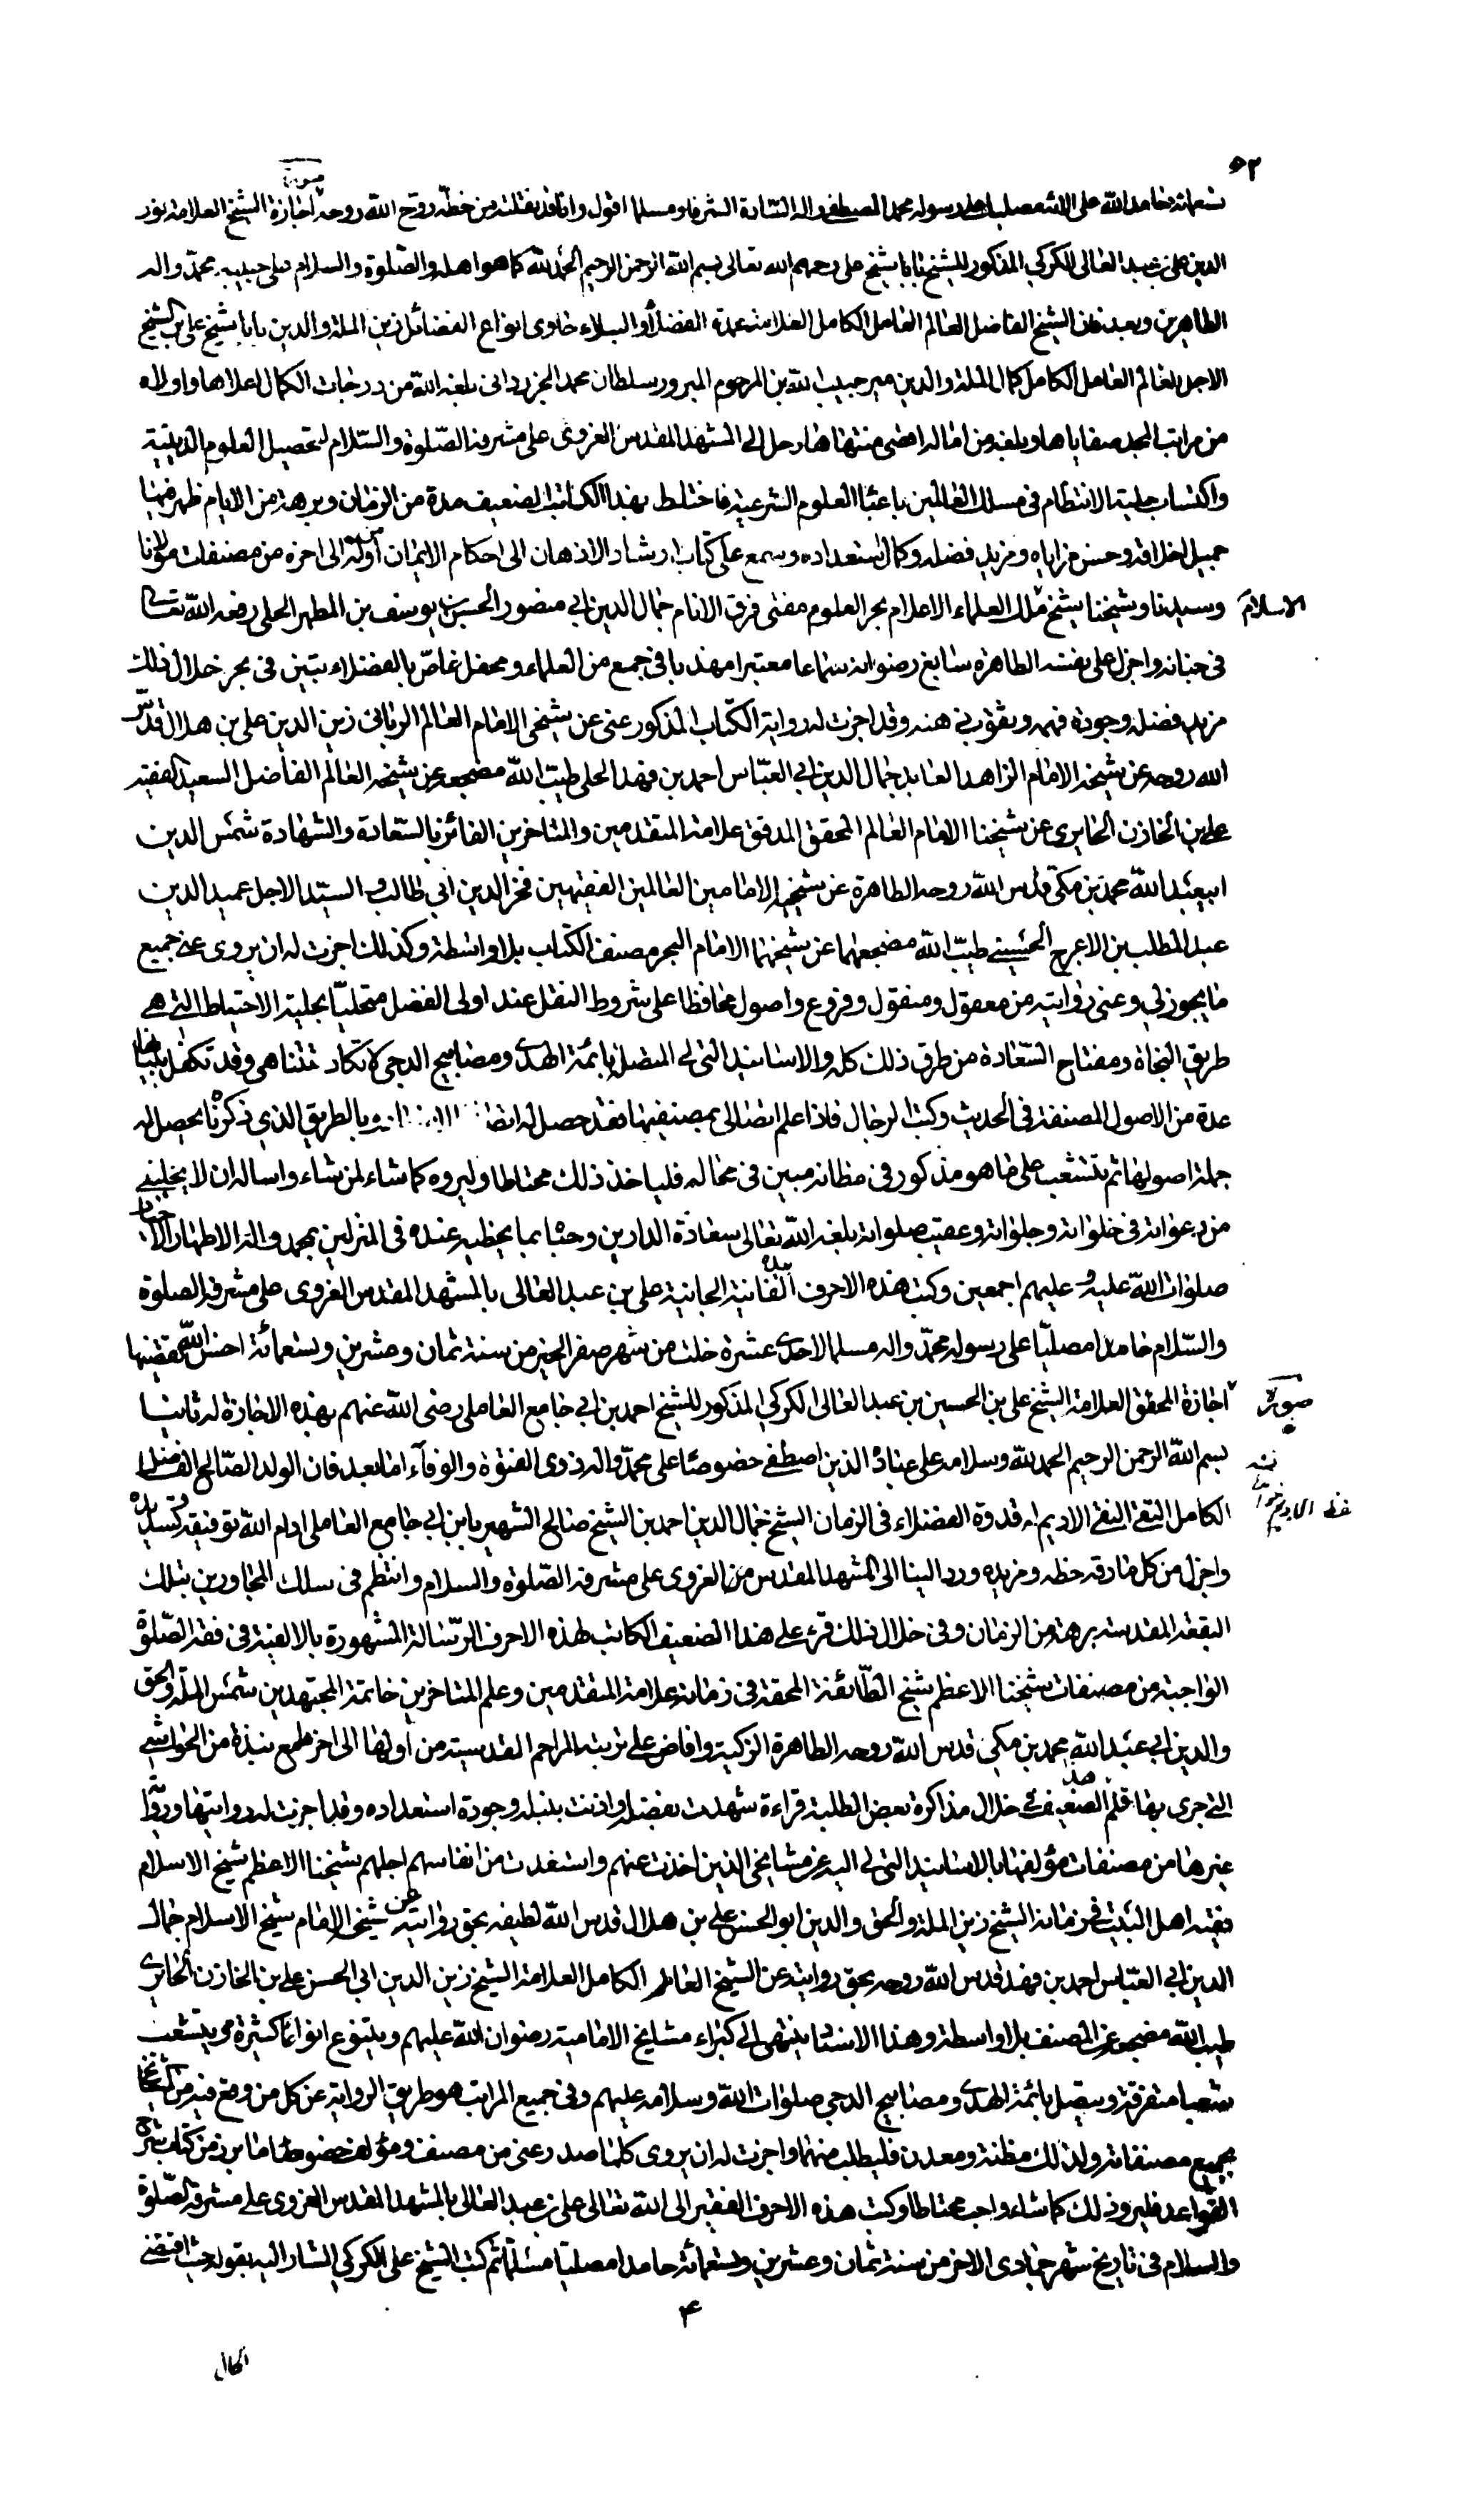 ٥٢
صورة
تسعمائة حامدا لله على الائه مصليا على رسوله محمد المصطفى واله السادة الشرفاء ومسلما اقول وانا قد نقلته من خطه روح الله روحه اجازة الشيخ العلامة نور
الدين على بن عبد العالى الكركي المذكور للشيخ بابا شيخ على رحمهم الله تعالى بسم الله الرحمن الرحيم الحمد لله كما هو اهله والصلوة والسلام على حبيبه محمد واله
الطاهرين وبعد فان الشيخ الفاضل العالم العامل الكامل العلامة عمدة الفضلاء والنبلاء حاوى انواع الفضائل زين الملة والدين بابا شيخ على بن الشيخ
الاجل العالم العامل الكامل كمال الملة والدين مير حبيب الله بن المرحوم المبرور سلطان محمد الجزردانى بلغه الله من درجات الكمال اعلاها واولاه
من مراتب المجد صفاياها وبلغه من اماله اقصى منتهاها رحل الى المشهد المقدس الغروى على مشرفه الصلوة والسلام لتحصيل العلوم الدينية
واكتساب حلية الانتظام في مسلك العالمين باعباء العلوم الشرعية فاختلط بهذا الكاتب الضعيف مدة من الزمان وبرهة من الايام ظهر فيها
جميل اخلاقه وحسن مزاياه ومزيد فضله وكمال استعداده وسمع على كتاب ارشاد الاذهان الى احكام الايمان من اوله الى اخره من مصنفات مولانا
وسيدنا وشيخنا شيخ ملك العلماء الاعلام بحر العلوم مفتى فرق الانام جمال الدين ابي منصور الحسن بن يوسف بن المطهر الحلى رفعه الله تعالى
الاسلام
في جنانه واجزل على نفسه الطاهرة سابغ رضوانه سماعا معتبرا مهذبا في جمع من العلماء ومحفل غاص بالفضلاء تبين في بحر خلال ذلك
مزيد فضله وجودة فهمه وثقوب ذهنه وقد اجزت له رواية الكتاب المذكور عنى عن شيخى الامام العالم الربانى زين الدين على بن هلال قدس
الله روحه عن شيخه الامام الزاهد العابد جمال الدين ابي العباس احمد بن فهد الحلى طيب الله مضجعه عن شيخه العالم الفاضل السعيد الفقيه
على بن الخازن الحايرى عن شيخنا الامام العالم المحقق المدقق علامة المتقدمين والمتاخرين الفائز بالسعادة والشهادة شمس الدين
ابي عبد الله محمد بن مكى قدس الله روحه الطاهرة عن شيخيه الامامين العالمين الفقيهين فخر الدين ابي طالب والسيد الاجل عميد الدين
عبد المطلب بن الاعرج الحسينى طيب الله مضجعهما عن شيخهما الامام البحر مصنف الكتاب بلا واسطة وكذلك اجزت له ان يروى عنى جميع
ما يجوز لي وعنى روايته من معقول ومنقول وفروع واصول محافظا على شروط النقل عند اولى الفضل متحليا بحلية الاحتياط التى هي
طريق النجاة ومفتاح السعادة من طرق ذلك كله والاسانيد التى لى المتصلة بائمة الهدى ومصابيح الدجى لا تكاد تتناهى وقد تكفل ببيانها
عدة من الاصول المصنفة في الحديث وكتب الرجال فاذا علم اتصالى بمصنفيها فقد حصل له اتصا بالطريق الذى ذكرناه يحصل له
جملة اصولها ثم يتشعب على ما هو مذكور في مظانه مبين في محاله فلياخذ ذلك محتاطا وليروه كما شاء لمن شاء واساله ان لا يخلينى
من دعواته في خلواته وجلواته وعقيب صلواته بلغه الله تعالى سعادة الدارين وحباه بما يحظيه عنده في المنزلين بمحمد واله الاطهار الاخيار
صلوات الله عليه وعليهم اجمعين وكتب هذه الاحرف بيده الفانية الجانية على بن عبد العالى بالمشهد المقدس الغروى على مشرفه الصلوة
والسلام حامدا مصليا على رسوله محمد واله مسلما لاحدى عشرة خلت من شهر صفر الخير من سنة ثمان وعشرين وتسعمائة احسن الله تقضيها
صورة
اجازة المحقق العلامة الشيخ على بن الحسين بن عبد العالى الكركي المذكور للشيخ احمد بن ابي جامع العاملى رضى الله عنهم بهذه الاجازة له ثانيا
بسم الله الرحمن الرحيم الحمد لله وسلامه على عباده الذين اصطفى خصوصا على محمد واله ذوى الفتوة والوفاء اما بعد فان الولد الصالح الفاضل
الكامل التقى النقى الاديم له قدوة الفضلاء في الزمان الشيخ جمال الدين احمد بن الشيخ صالح الشهير بابن ابي جامع العاملى ادام الله توفيقه وتسديده
واجزل من كل عارفة حظه ومزيده ورد الينا الى المشهد المقدس الغروى على مشرفه الصلوة والسلام وانتظم في سلك المجاورين بتلك
البقعة المقدسة برهة من الزمان وفي خلال ذلك قرء على هذا الضعيف الكاتب لهذه الاحرف الرسالة المشهورة بالالفية في فقه الصلوة
الواجبة من مصنفات شيخنا الاعظم شيخ الطائفة المحقة في زمانه علامة المتقدمين وعلم المتاخرين خاتمة المجتهدين شمس الملة والحق
والدين ابي عبد الله محمد بن مكي قدس الله روحه الطاهرة الزكية وافاض على تربته المراحم القدسية من اولها الى اخرها مع نبذة من الحواشى
التى جرى بها قلم هذا الضعيف في خلال مذاكرة بعض الطلبة قراءة شهدت بفضله واذنت بنبله وجودة استعداده وقد اجزت له روايتها ورواية
غيرها من مصنفات مؤلفها بالاسانيد التى لى اليه عن مشايخى الذين اخذت عنهم واستفدت من انفاسهم اجلهم شيخنا الاعظم شيخ الاسلام
فقيه اهل البيت في زمانه الشيخ زين الملة والحق والدين ابو الحسن على بن هلال قدس الله لطيفه بحق روايته عن شيخه الامام شيخ الاسلام جمال
الدين ابي العباس احمد بن فهد قدس الله روحه بحق روايته عن الشيخ العالم الكامل العلامة الشيخ زين الدين ابي الحسن على بن الخازن الحايرى
طيب الله مضجعه عن المصنف بلا واسطة وهذا الاسناد ينتهى الى كبراء مشايخ الامامية رضوان الله عليهم ويتنوع انواعا كثيرة ويتشعب
شعبا متفرقة ويتصل بائمة الهدى ومصابيح الدجى صلوات الله وسلامه عليهم وفي جميع المراتب هو طريق الرواية عن كل من وقع فيه من المشايخ
بجميع مصنفاته ولذلك مظنة ومعدن فليطلب منهما واجزت له ان يروى كلما صدر عنى من مصنف ومؤلف خصوصا ما برز من كتاب شرح
القواعد فليرو ذلك كما شاء واحب محتاطا وكتب هذه الاحرف الفقير الى الله تعالى على بن عبد العالى بالمشهد المقدس الغروى على مشرفه الصلوة
والسلام في تاريخ شهر جمادى الاخر من سنة ثمان وعشرين وتسعمائة حامدا مصليا مسلما ثم كتب الشيخ على الكركي المشار اليه بقوله حيث اقتضى
۴
الحال